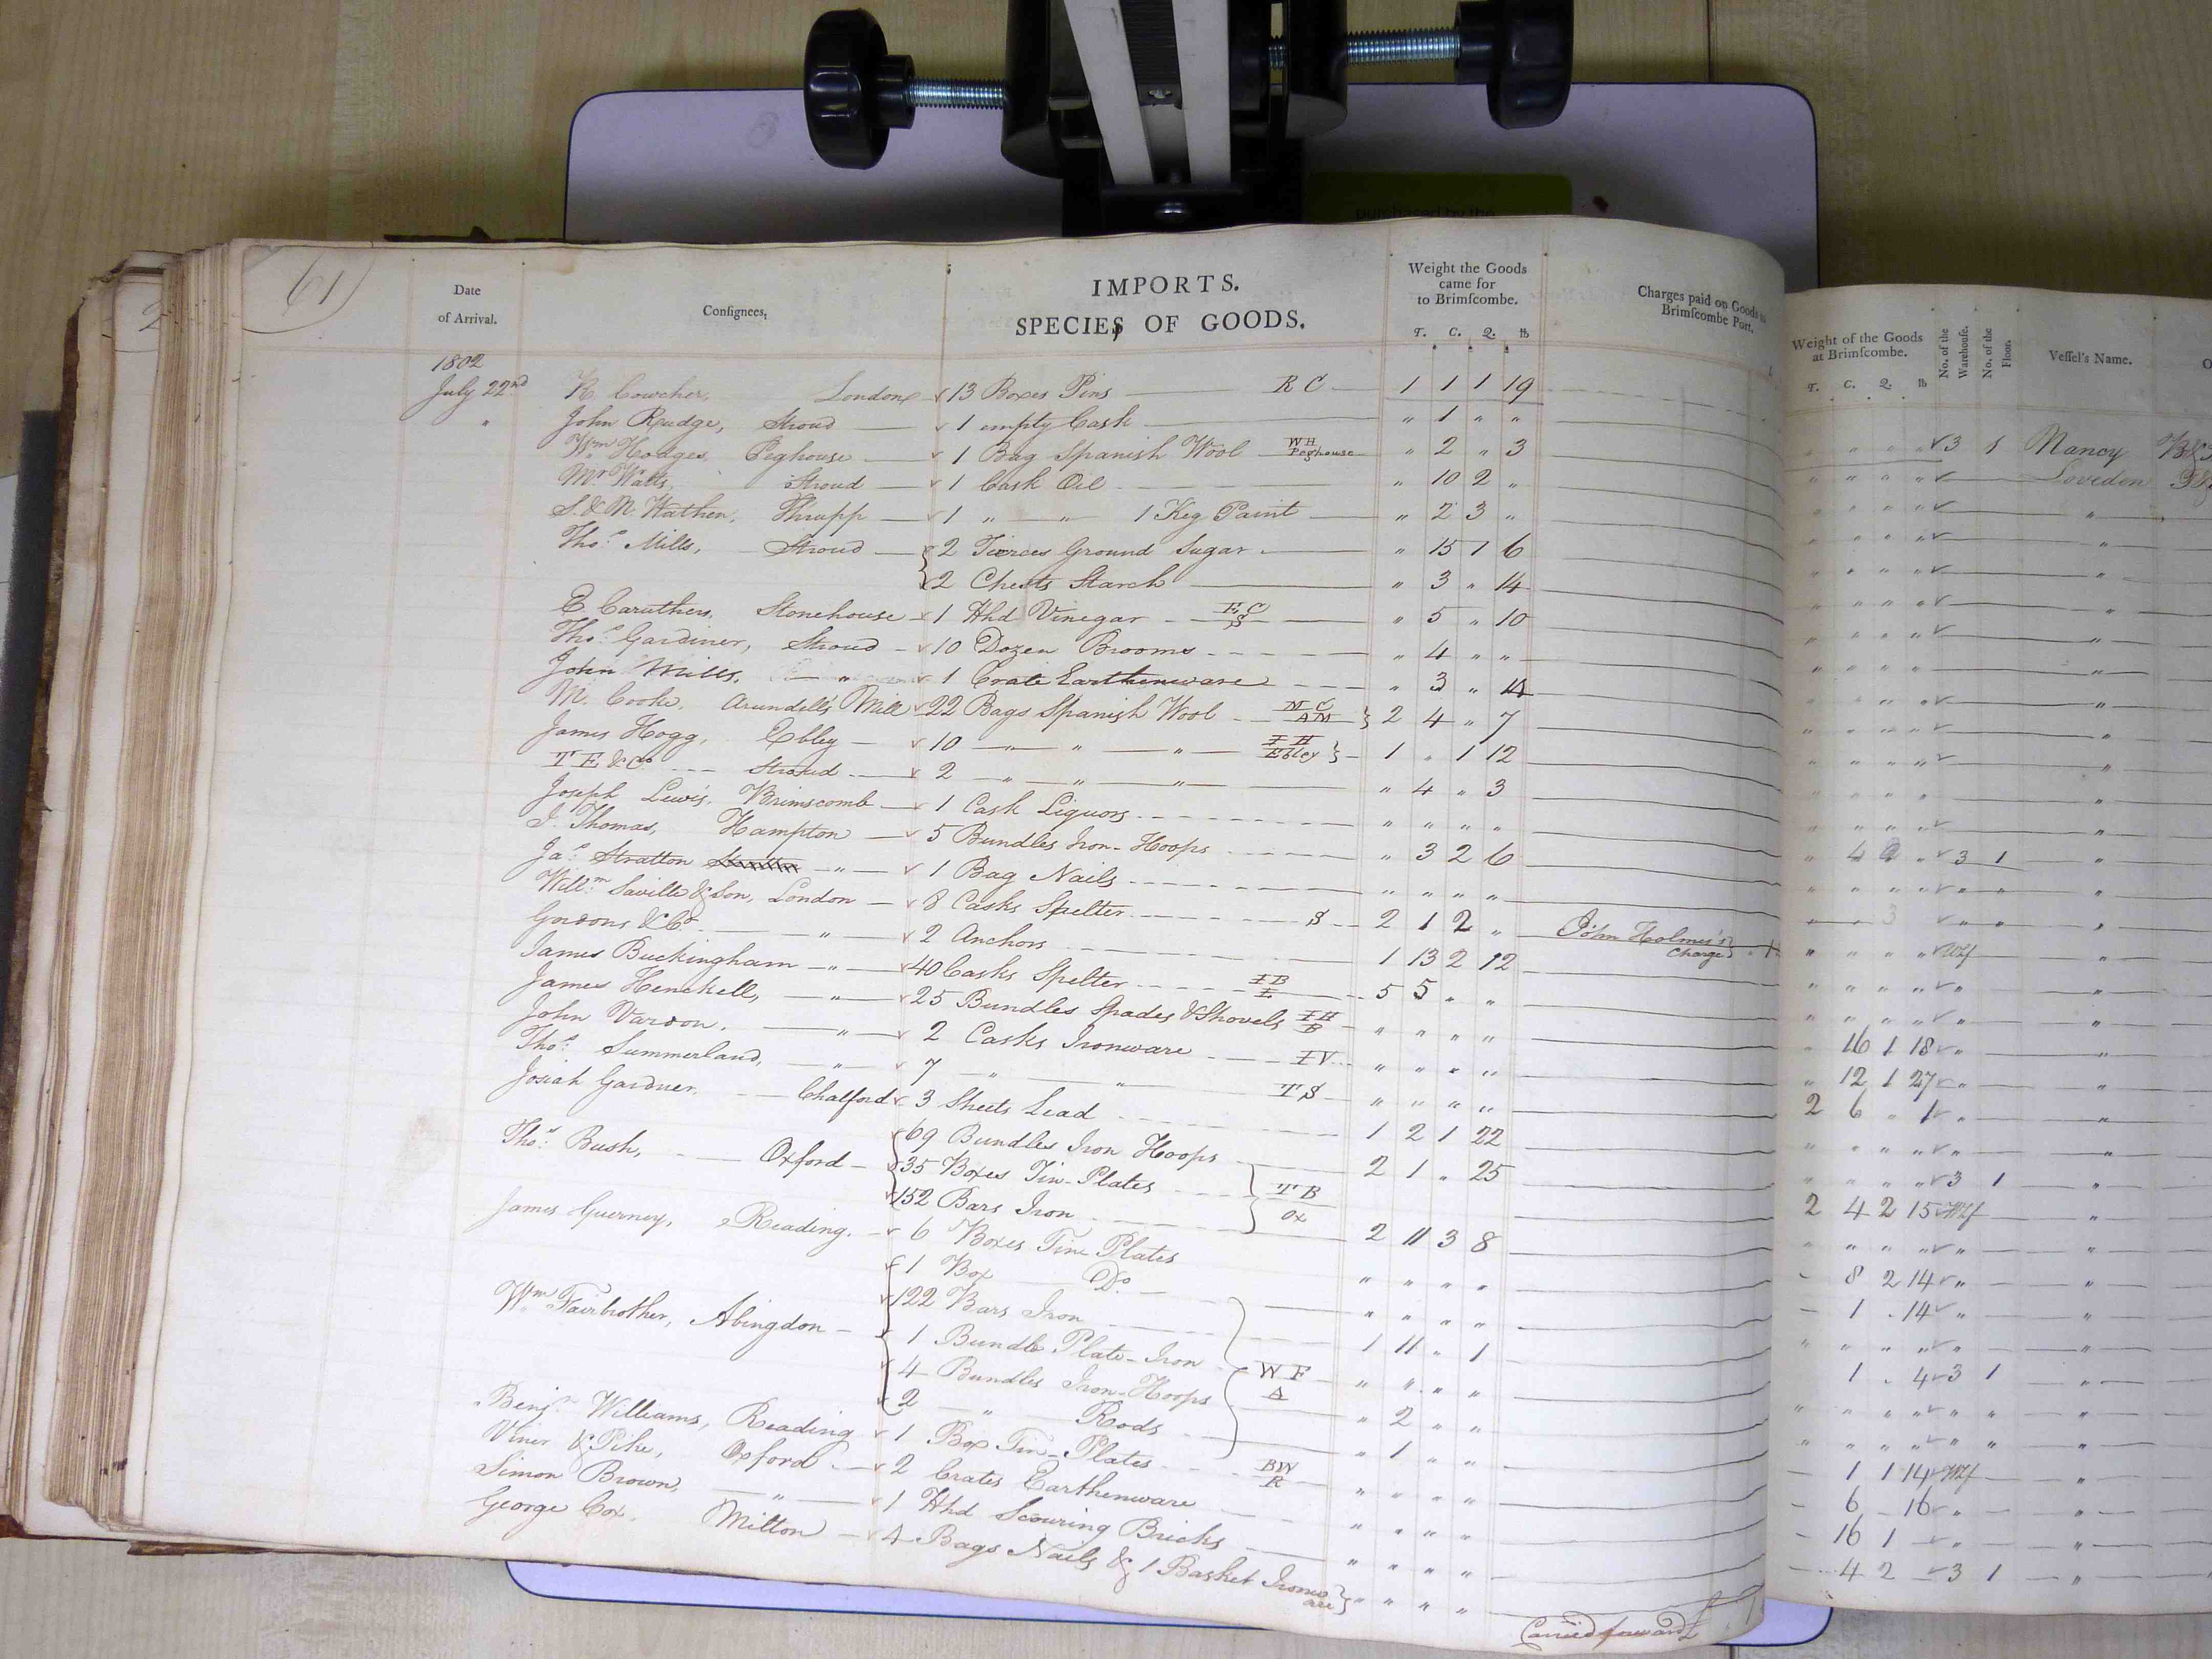 61
Date
of Arrival.
Consignees,
IMPORTS.
SPECIES OF GOODS.
Weight the Goods
came for
to Brimscombe.
T. C. Q. lb
Charges paid on Goods
Brimscombe Port,
1802
July 22nd R. Cowcher, London 13 Boxes Pins R C 1 1 1 19
" John Rudge, Stroud 1 empty Cask " 1 " "
Wm Hodges, Peghouse 1 Bag Spanish Wool WH Peghouse " 2 " 3
Mr Watts, Stroud 1 Cask Oil " 10 2 "
S. & N. Wathen, Thrupp 1 " " 1 Keg Paint " 2 3 "
Thos Mills, Stroud 2 Tierces Ground Sugar " 15 1 6
2 Chests Starch " 3 " 14
E. Caruthers, Stonehouse 1 Hhd Vinegar E C S " 5 " 10
Thos Gardiner, Stroud 10 Dozen Brooms " 4 " "
John Mills, " 1 Crate Earthenware " 3 " 14
M. Cooke, Arundell's Mill 22 Bags Spanish Wool M C AM 2 4 " 7
James Hogg, Ebley 10 " " " I H Ebley 1 " 1 12
T E & Co Stroud 2 " " " " 4 " 3
Joseph Lewis, Brimscomb 1 Cask Liquors " " " "
J. Thomas, Hampton 5 Bundles Iron-Hoops " 3 2 6
Jas Stratton " 1 Bag Nails " " " "
Willm Saville & Son, London 8 Casks Spelter S 2 1 2 " John Holmes's Charge
Gordons & Co " 2 Anchors 1 13 2 12
James Buckingham " 40 Casks Spelter I B 5 5 " "
James Henckell, " 25 Bundles Spades & Shovels I H B " " " "
John Vardon, " 2 Casks Ironware I V " " " "
Thos Summerland, " 7 " " T S " " " "
Josiah Gardner, Chalford 3 Sheets Lead 1 2 1 22
69 Bundles Iron Hoops 2 1 " 25
Thos Bush, Oxford 35 Boxes Tin-Plates T B Ox
152 Bars Iron 2 11 3 8
James Guerney, Reading 6 Boxes Tin Plates " " " "
1 Box Do " " " "
122 Bars Iron 1 11 " 1
Wm Fairbrother, Abingdon 1 Bundle Plate-Iron W F A " " " "
4 Bundles Iron-Hoops " 2 " "
2 " Rods " 1 " "
Benjn Williams, Reading 1 Box Tin-Plates BW R " " " "
Viner & Pike, Oxford 2 Crates Earthenware " " " "
Simon Brown, " 1 Hhd Scouring Bricks " " " "
George Cox, Milton 4 Bags Nails & 1 Basket Ironware " " " "
Carried forward
Weight of the Goods
at Brimscombe.
T. C. Q. lb
No. of the
Warehouse.
No. of the
Floor.
Vessel's Name.
" " " " 3 1 Nancy
" " " " Loveden
" 4 2 " 3 1 "
3
" " " " Whf "
16 1 18 "
12 1 27 "
2 6 " 1 "
" " " " 3 1 "
2 4 2 15 Whf "
8 2 14 "
1 . 14 "
1 . 4 3 1 "
1 1 14 Whf "
6 16 "
16 1 "
4 2 3 1 "